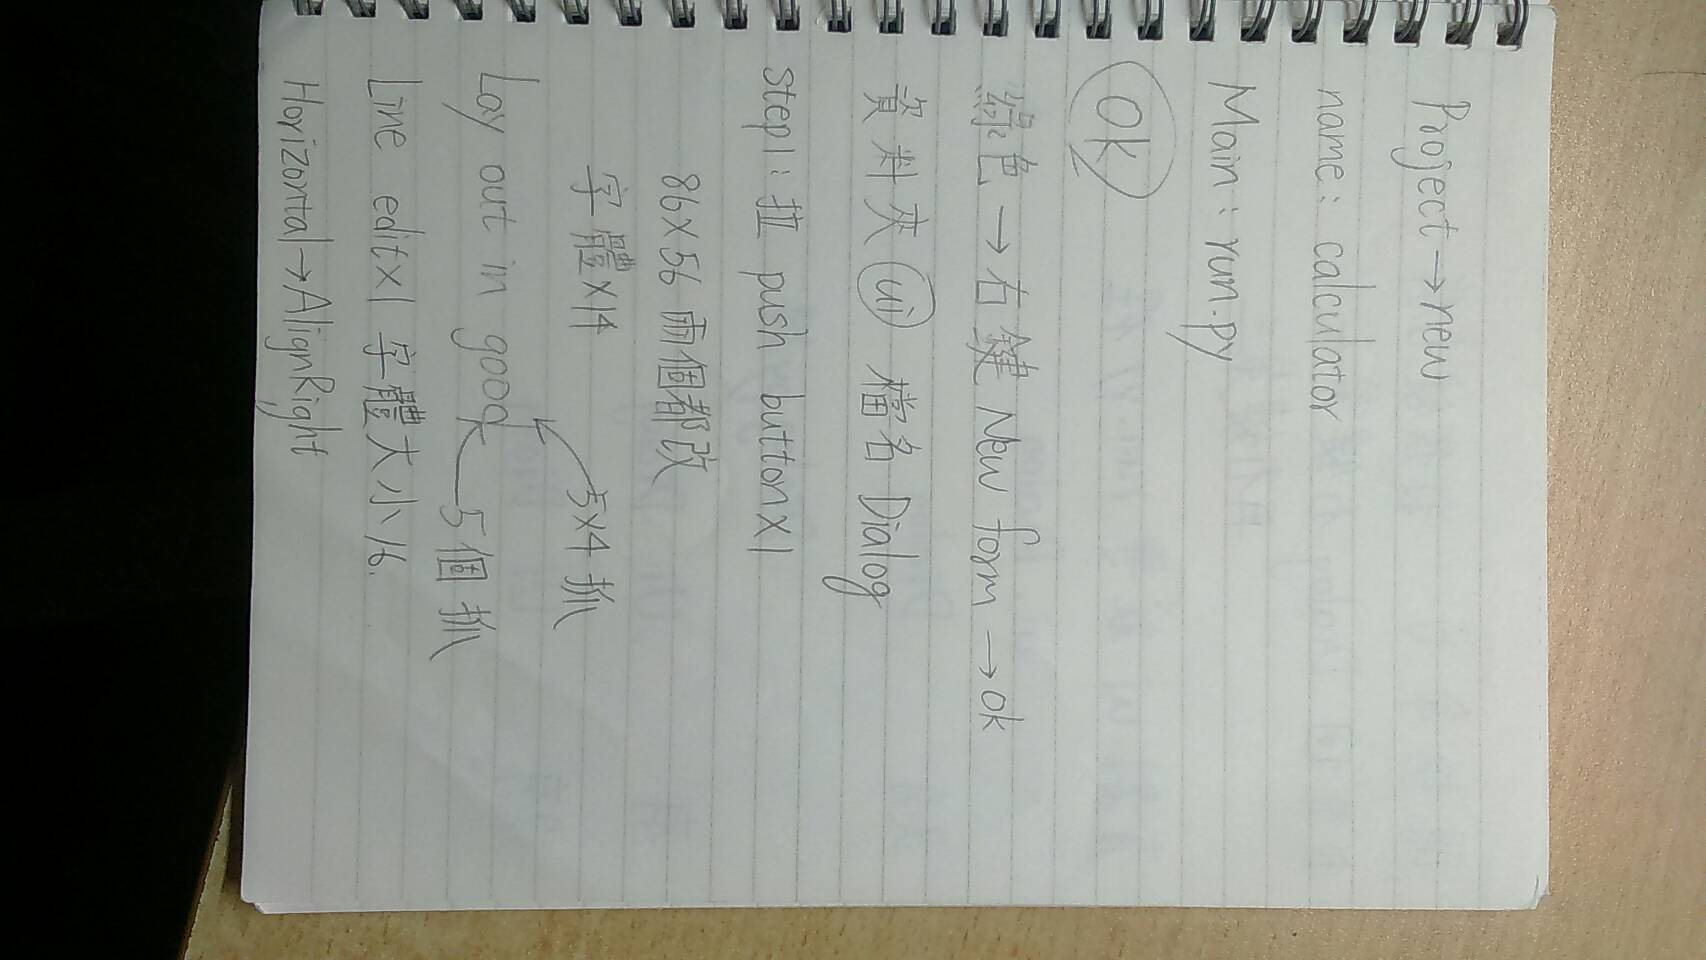 Project→new
name: calculator
Main: run.py
Ok
綠色→右鍵 New form→ok
資料夾 ui 檔名 Dialog
Step1: 拉 push button×1
86×56 兩個都改
字體×14
5×4 抓
Lay out in good
5個 抓
Line edit×1 字體大小16.
Horizontal→AlignRight